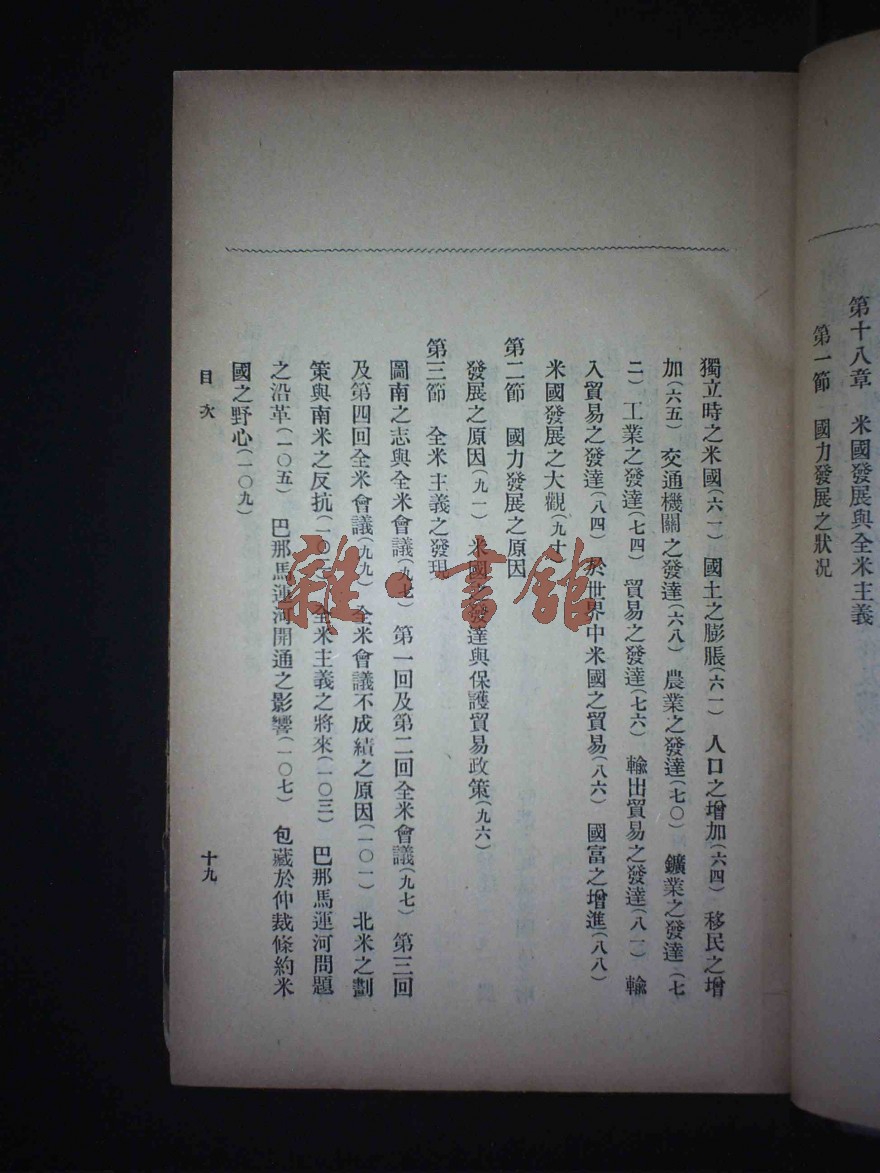 第十八章　米國發展與全米主義
第一節　國力發展之狀況
獨立時之米國(六一)　國土之膨脹(六一)　人口之增加(六四)　移民之增
加(六五)　交通機關之發達(六八)　農業之發達(七〇)　鑛業之發達(七
二)　工業之發達(七四)　貿易之發達(七六)　輸出貿易之發達(八一)　輸
入貿易之發達(八四)　於世界中米國之貿易(八六)　國富之增進(八八)
米國發展之大觀(九十
第二節　國力發展之原因
發展之原因(九一)　米國之發達與保護貿易政策(九六)
第三節　全米主義之發現
圖南之志與全米會議(九七)　第一回及第二回全米會議(九七)　第三回
及第四回全米會議(九九)　全米會議不成績之原因(一〇一)　北米之劃
策與南米之反抗(一〇二)　全米主義之將來(一〇三)　巴那馬運河問題
之沿革(一〇五)　巴那馬運河開通之影響(一〇七)　包藏於仲裁條約米
國之野心(一〇九)
目次
十九
雜·書館